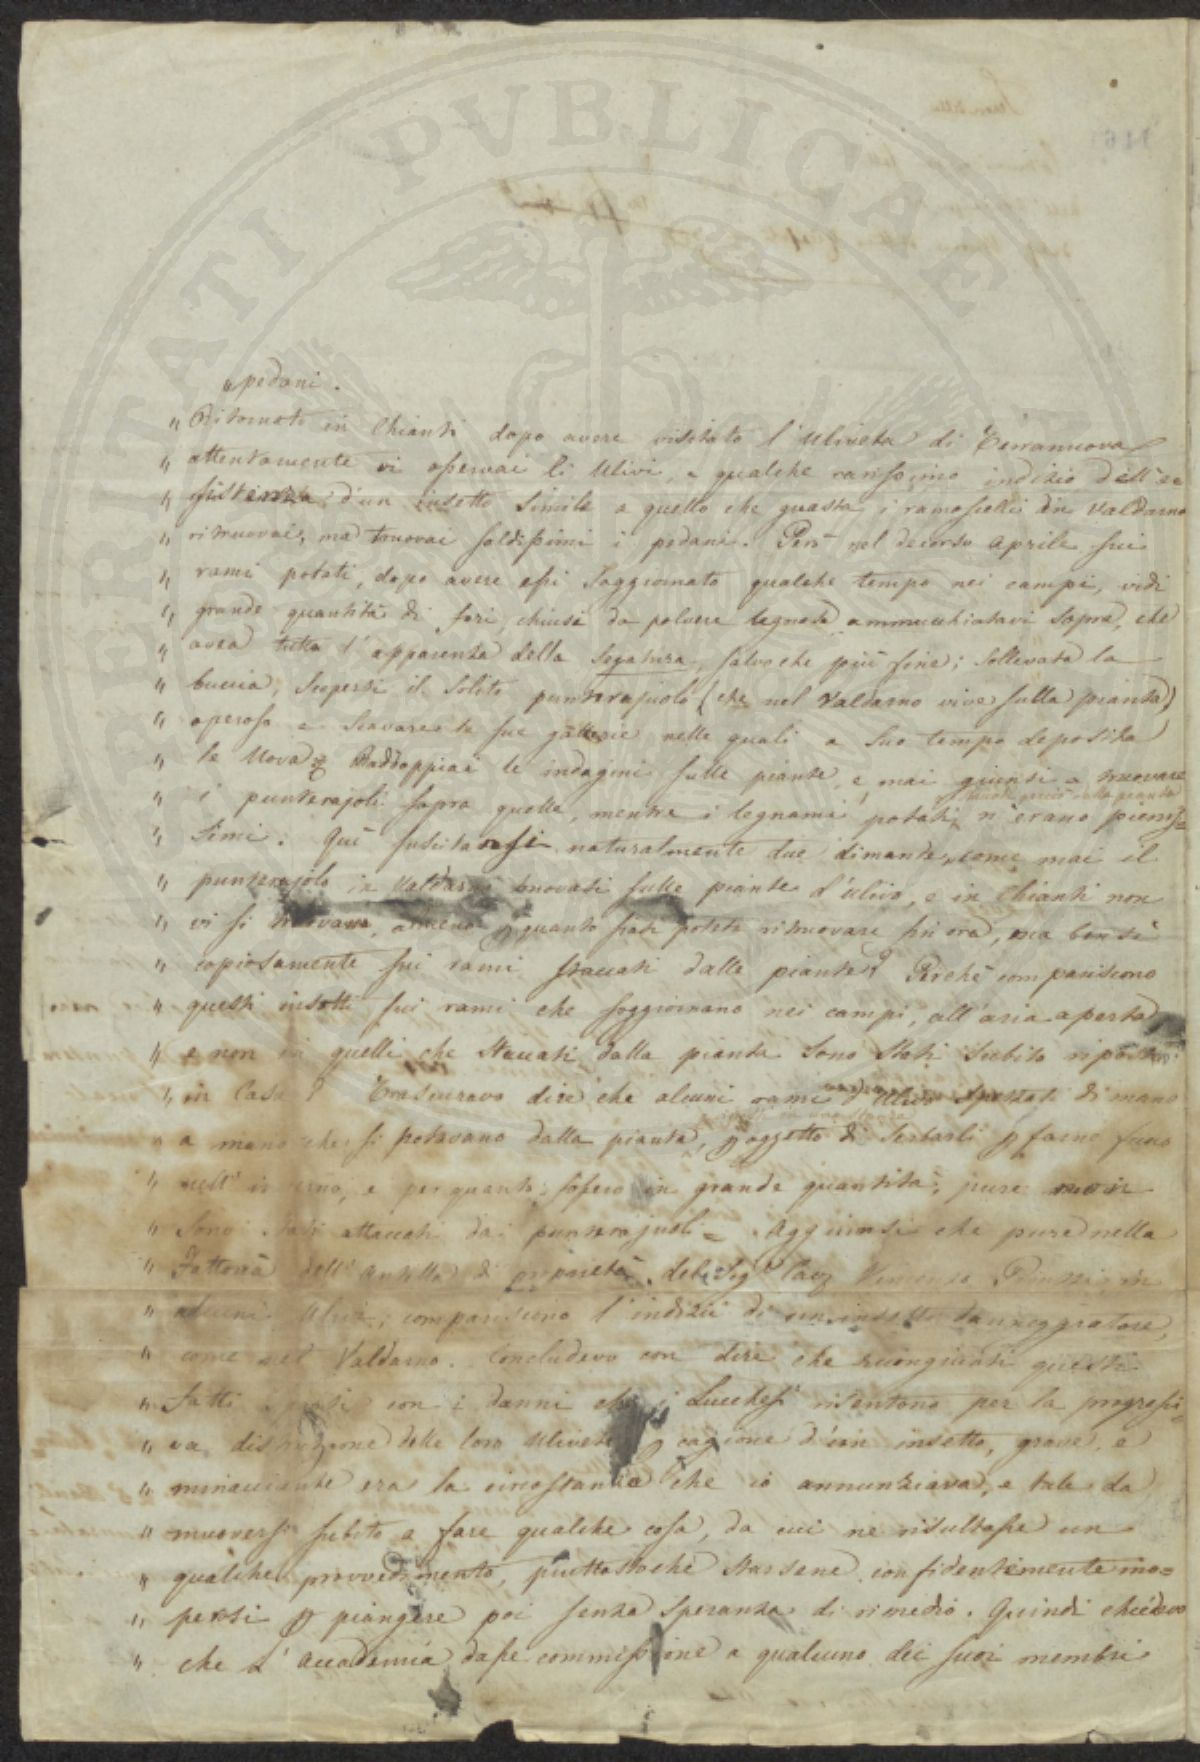 PERITATI PVBLICAE
„ pedani.
„ Ritornato in Chianti dopo avere visitato l'Uliveta di Terranuova
„ attentamente vi osservai li Ulivi, e qualche rarissimo indizio dell'e
„ sistenza d'un insetto simile a quello che guasta i ramoscelli in Valdarno
„ rinvenni, ma trovai saldissimi i pedani. Però nel decorso Aprile sui
„ rami potati, dopo avere essi soggiornato qualche tempo nei campi, vidi
„ grande quantità di fori, chiusi da polvere legnosa ammucchiatavi sopra, che
„ avea tutta l'apparenza della segatura, salvo che più fine; sollevata la
„ buccia, scopersi il solito punterajuolo (che nel Valdarno vive sulla pianta)
„ operoso a scavare le sue gallerie nelle quali a suo tempo deposita
„ le Uova. Raddoppiai le indagini sulle piante, e mai giunsi a trovare
„ i punterajoli sopra quelle, mentre i legnami potati n'erano pienis=
„ simi. Quì suscitaronsi naturalmente due dimande, come mai il
„ punterajolo in Valdarno trovasi sulle piante d'ulivo, e in Chianti non
„ vi si trovava, almeno p quanto siasi potuto ritrovare fin ora, ma bensì
„ copiosamente sui rami staccati dalle piante? Perchè compariscono
„ questi insetti sui rami che soggiornano nei campi, all'aria aperta
„ e non in quelli che staccati dalla pianta sono stati subito riposti
„ in Casa? Trascuravo dire che alcuni rami d'Ulivo spezzati di mano
„ a mano che si potavano dalla pianta, p oggetto di serbarli p farne fuoco
„ nell'inverno, e per quanto fossero in grande quantità, pure non
„ sono stati attaccati dai punterajuoli. Aggiunsi che pure nella
„ Fattoria dell'Antella di proprietà del Sigr Cav Vincenzo Peruzzi in
„ alcuni Ulivi, compariscono l'indizii di un insetto danneggiatore,
„ come nel Valdarno. Concludevo con dire che ricongiunti questi
„ Fatti con i danni che i Lucchesi risentono per la progressi=
„ va distruzione delle loro Ulivete p cagione d'un insetto, grave, e
„ minacciante era la circostanza che io annunziava, e tale da
„ muoversi subito a fare qualche cosa, da cui ne risultasse un
„ qualche provvedimento, piuttostoche starsene confidentemente ino=
„ perosi p piangere poi senza speranza di rimedio. Quindi chiedevo
„ che L'Accademia dasse commissione a qualcuno dei suoi membri